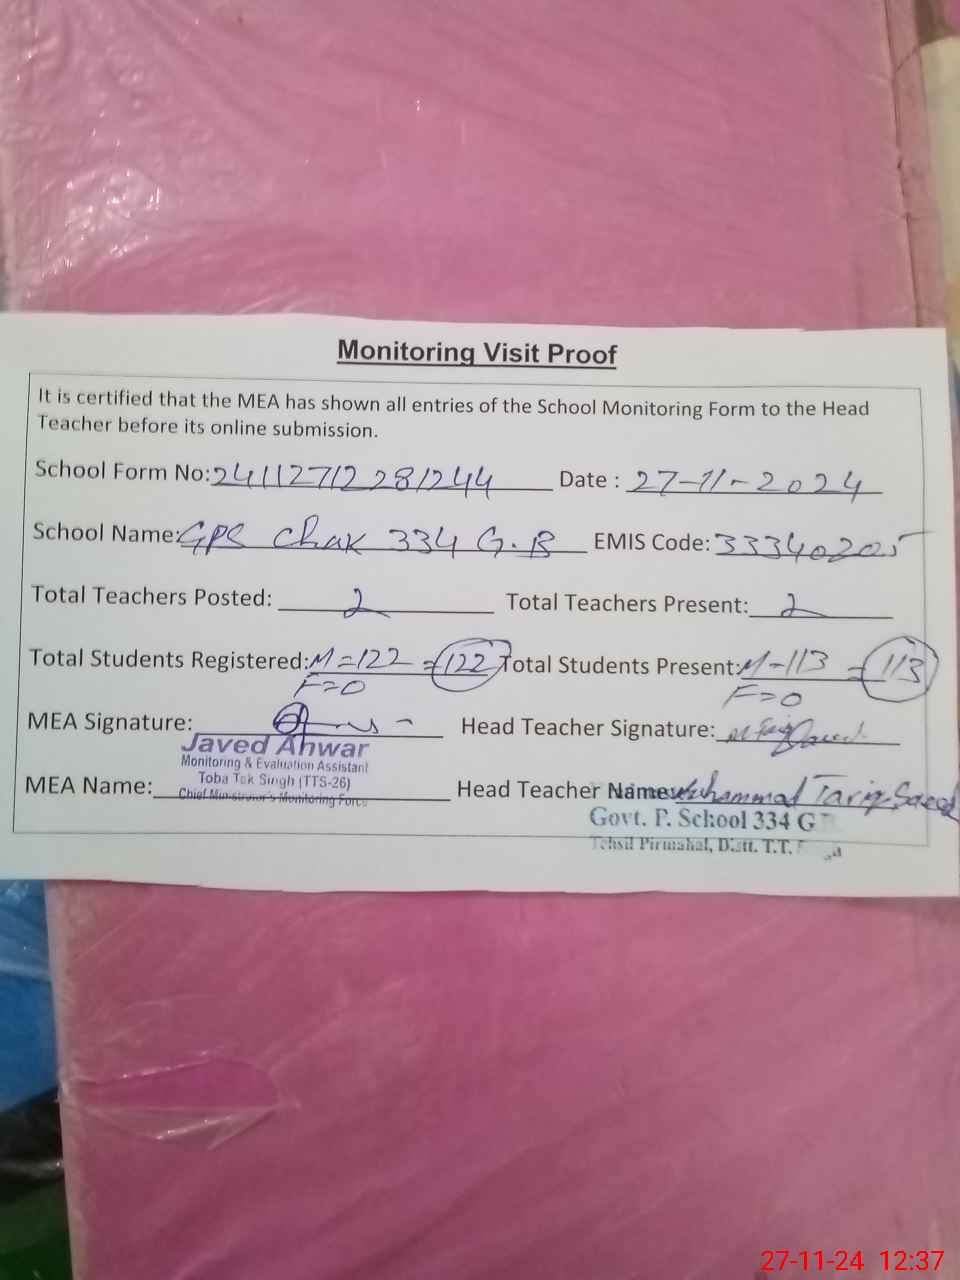 Monitoring Visit Proof
It is certified that the MEA has shown all entries of the School Monitoring Form to the Head
Teacher before its online submission.
School Form No: 24112712281244 Date : 27-11-2024
School Name: GPS Chak 334 G.B EMIS Code: 33340205
Total Teachers Posted: 2 Total Teachers Present: 2
Total Students Registered: M=122 =122 Total Students Present: M-113 = 113
F=0 F=0
MEA Signature: Head Teacher Signature:
Javed Anwar
Monitoring & Evaluation Assistant
Toba Tek Singh (TTS-26)
Chief Minister's Monitoring Force
MEA Name: Head Teacher Name: Muhammad Tariq Saeed
Govt. P. School 334 G
Tehsil Pirmahal, Distt. T.T.
27-11-24 12:37